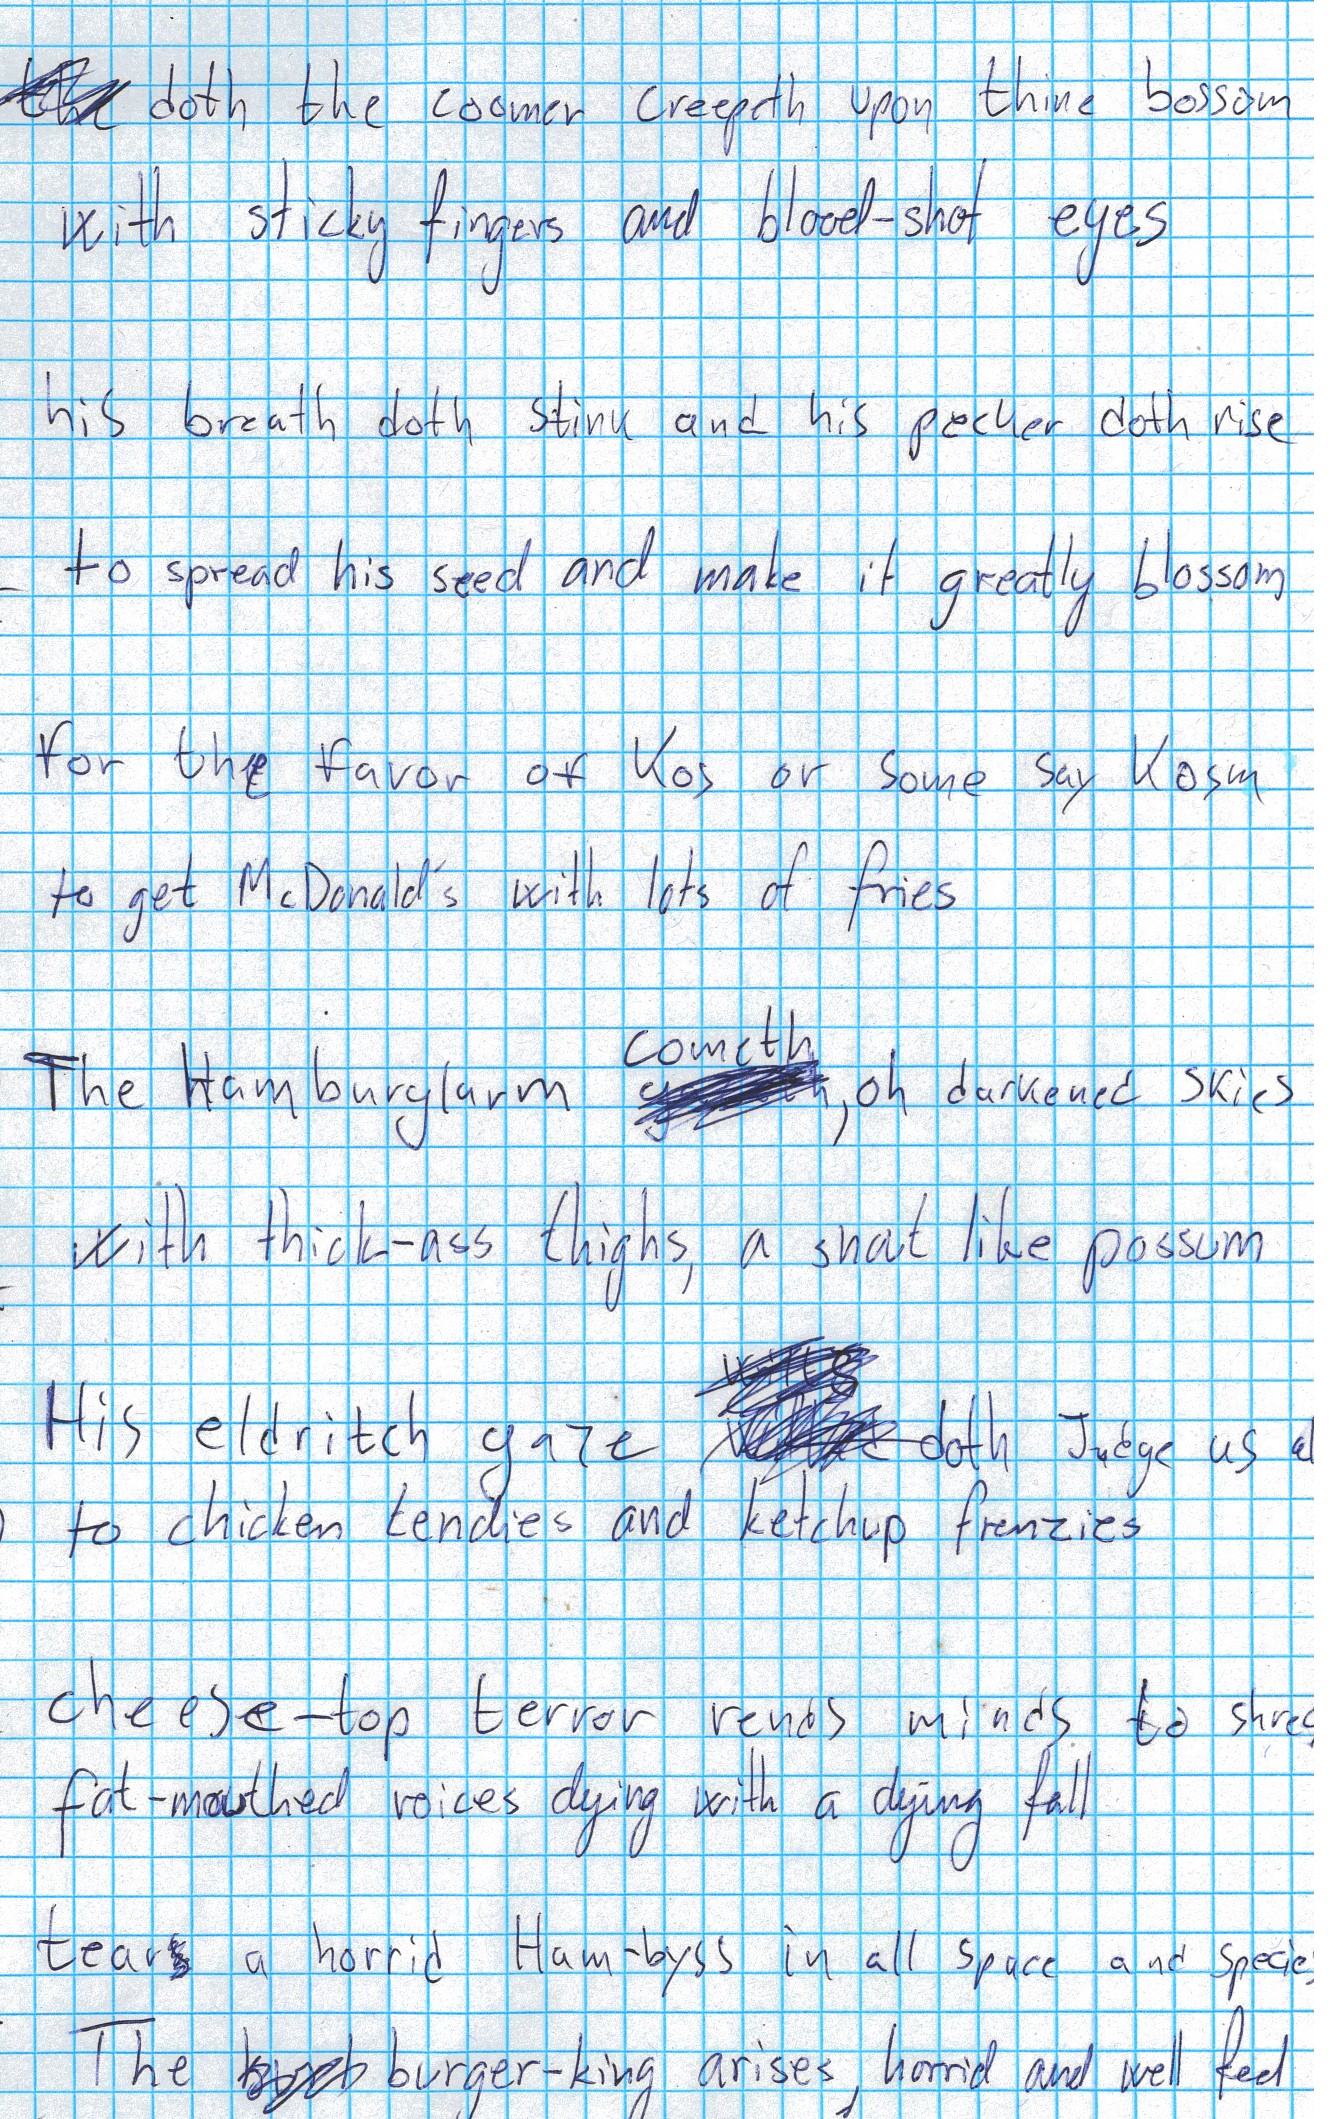 doth the coomer creepeth upon thine bossom
with sticky fingers and blood-shot eyes
his breath doth stink and his pecker doth rise
to spread his seed and make it greatly blossom
for the favor of Kos or some say Kosm
to get McDonald's with lots of fries
The Hamburglarm cometh, oh darkened skies
with thick-ass thighs, a snout like possum
His eldritch gaze doth Judge us al
to chicken tendies and ketchup frenzies
cheese-top terror rends minds to shred
fat-mouthed voices dying with a dying fall
tears a horrid Ham-byss in all space and species
The burger-king arises, horrid and well fed